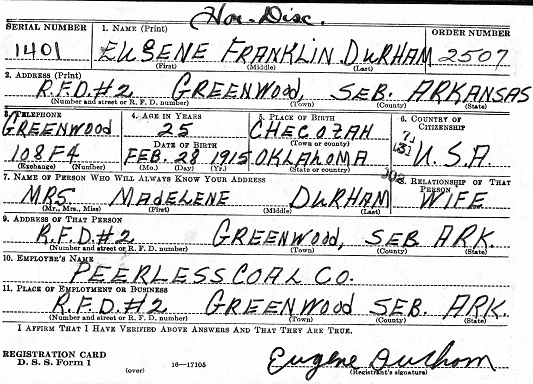 Hon. Disc.
SERIAL NUMBER 1. NAME (Print) ORDER NUMBER
1401 EUGENE FRANKLIN DURHAM 2507
(First) (Middle) (Last)
2. ADDRESS (Print)
R.F.D.#2 GREENWOOD, SEB. ARKANSAS
(Number and street or R. F. D. number) (Town) (County) (State)
3. TELEPHONE 4. AGE IN YEARS 5. PLACE OF BIRTH 6. COUNTRY OF CITIZENSHIP
GREENWOOD 25 CHECOTAH
(Town or county)
DATE OF BIRTH
108F4 FEB. 28 1915 OKLAHOMA U.S.A.
(Exchange) (Number) (Mo.) (Day) (Yr.) (State or country)
7. NAME OF PERSON WHO WILL ALWAYS KNOW YOUR ADDRESS 8. RELATIONSHIP OF THAT PERSON
MRS. MADELENE DURHAM WIFE
(Mr., Mrs., Miss) (First) (Middle) (Last)
9. ADDRESS OF THAT PERSON
R.F.D.#2 GREENWOOD, SEB ARK.
(Number and street or R. F. D. number) (Town) (County) (State)
10. EMPLOYER'S NAME
PEERLESS COAL CO.
11. PLACE OF EMPLOYMENT OR BUSINESS
R.F.D.#2 GREENWOOD SEB. ARK.
(Number and street or R. F. D. number) (Town) (County) (State)
I AFFIRM THAT I HAVE VERIFIED ABOVE ANSWERS AND THAT THEY ARE TRUE.
REGISTRATION CARD
D. S. S. Form 1 (over) 16—17105 Eugene Durham
(Registrant's signature)